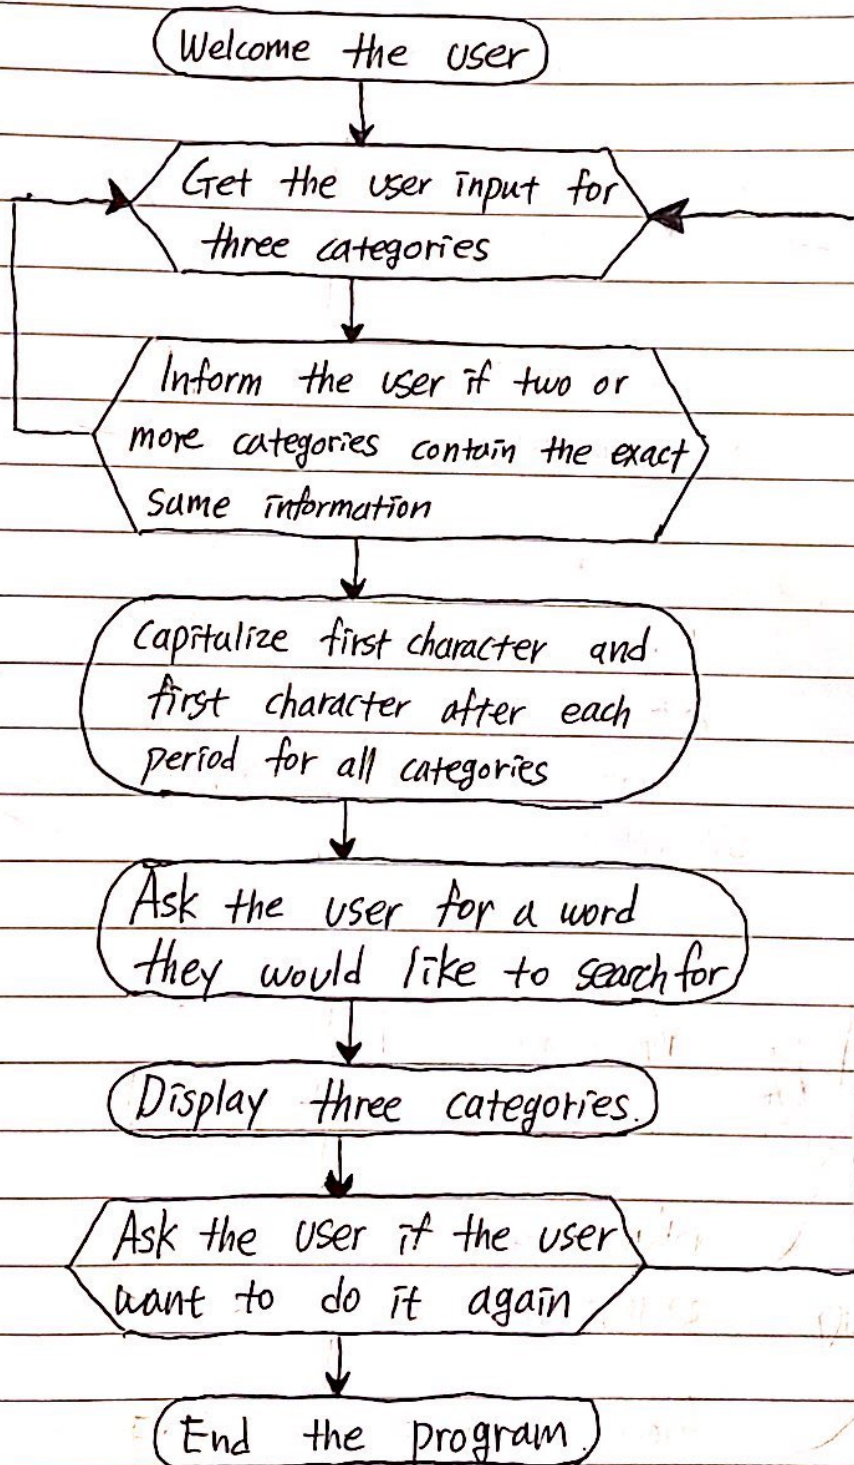 Welcome the user
Get the user input for
three categories
Inform the user if two or
more categories contain the exact
same information
Capitalize first character and
first character after each
period for all categories
Ask the user for a word
they would like to search for
Display three categories.
Ask the user if the user
want to do it again
End the program.